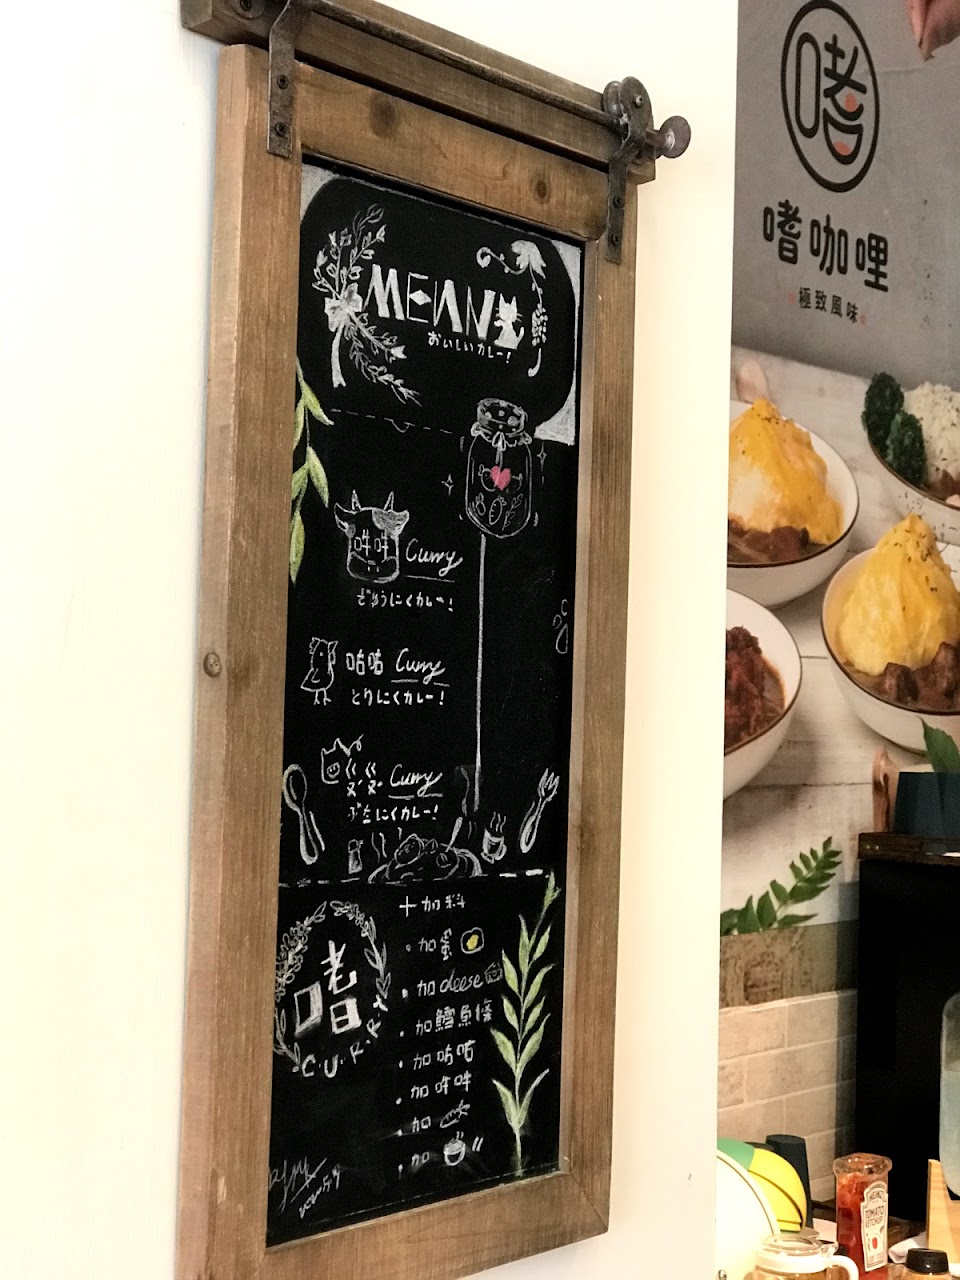 MEANU
おいしいカレー!
哞哞 Curry
ぎゅうにくカレー!
咕咕 Curry
とりにくカレー!
ㄍㄡˊㄍㄡˊ Curry
ぶたにくカレー!
+加料
·加蛋
·加cheese
·加鱈魚條
·加咕咕
·加哞哞
·加
·加
嗜
C.U.R.R.Y
嗜
嗜咖哩
極致風味
HEINZ
TOMATO
KETCHUP